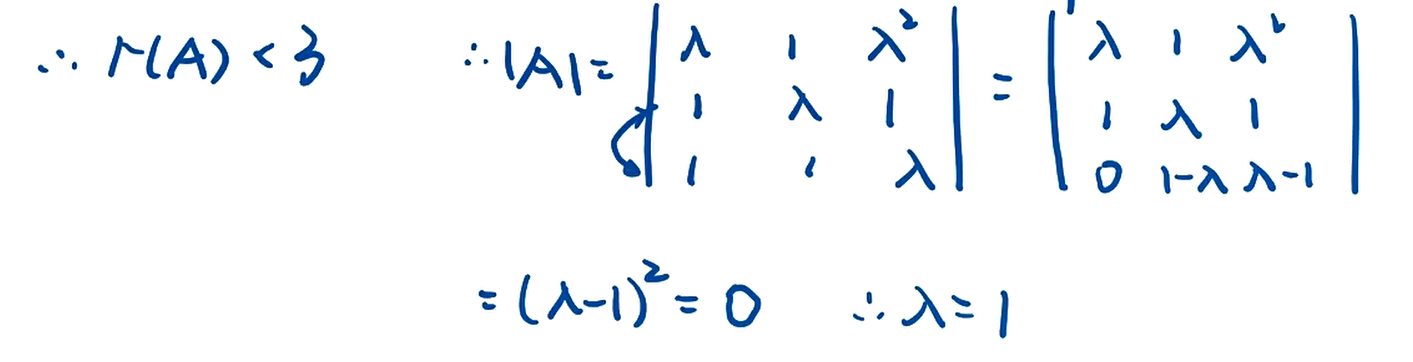 ∴ r(A) < 3  ∴ |A| = | λ 1 λ² ; 1 λ 1 ; 1 1 λ | = | λ 1 λ² ; 1 λ 1 ; 0 1-λ λ-1 |
= (λ-1)² = 0  ∴ λ = 1